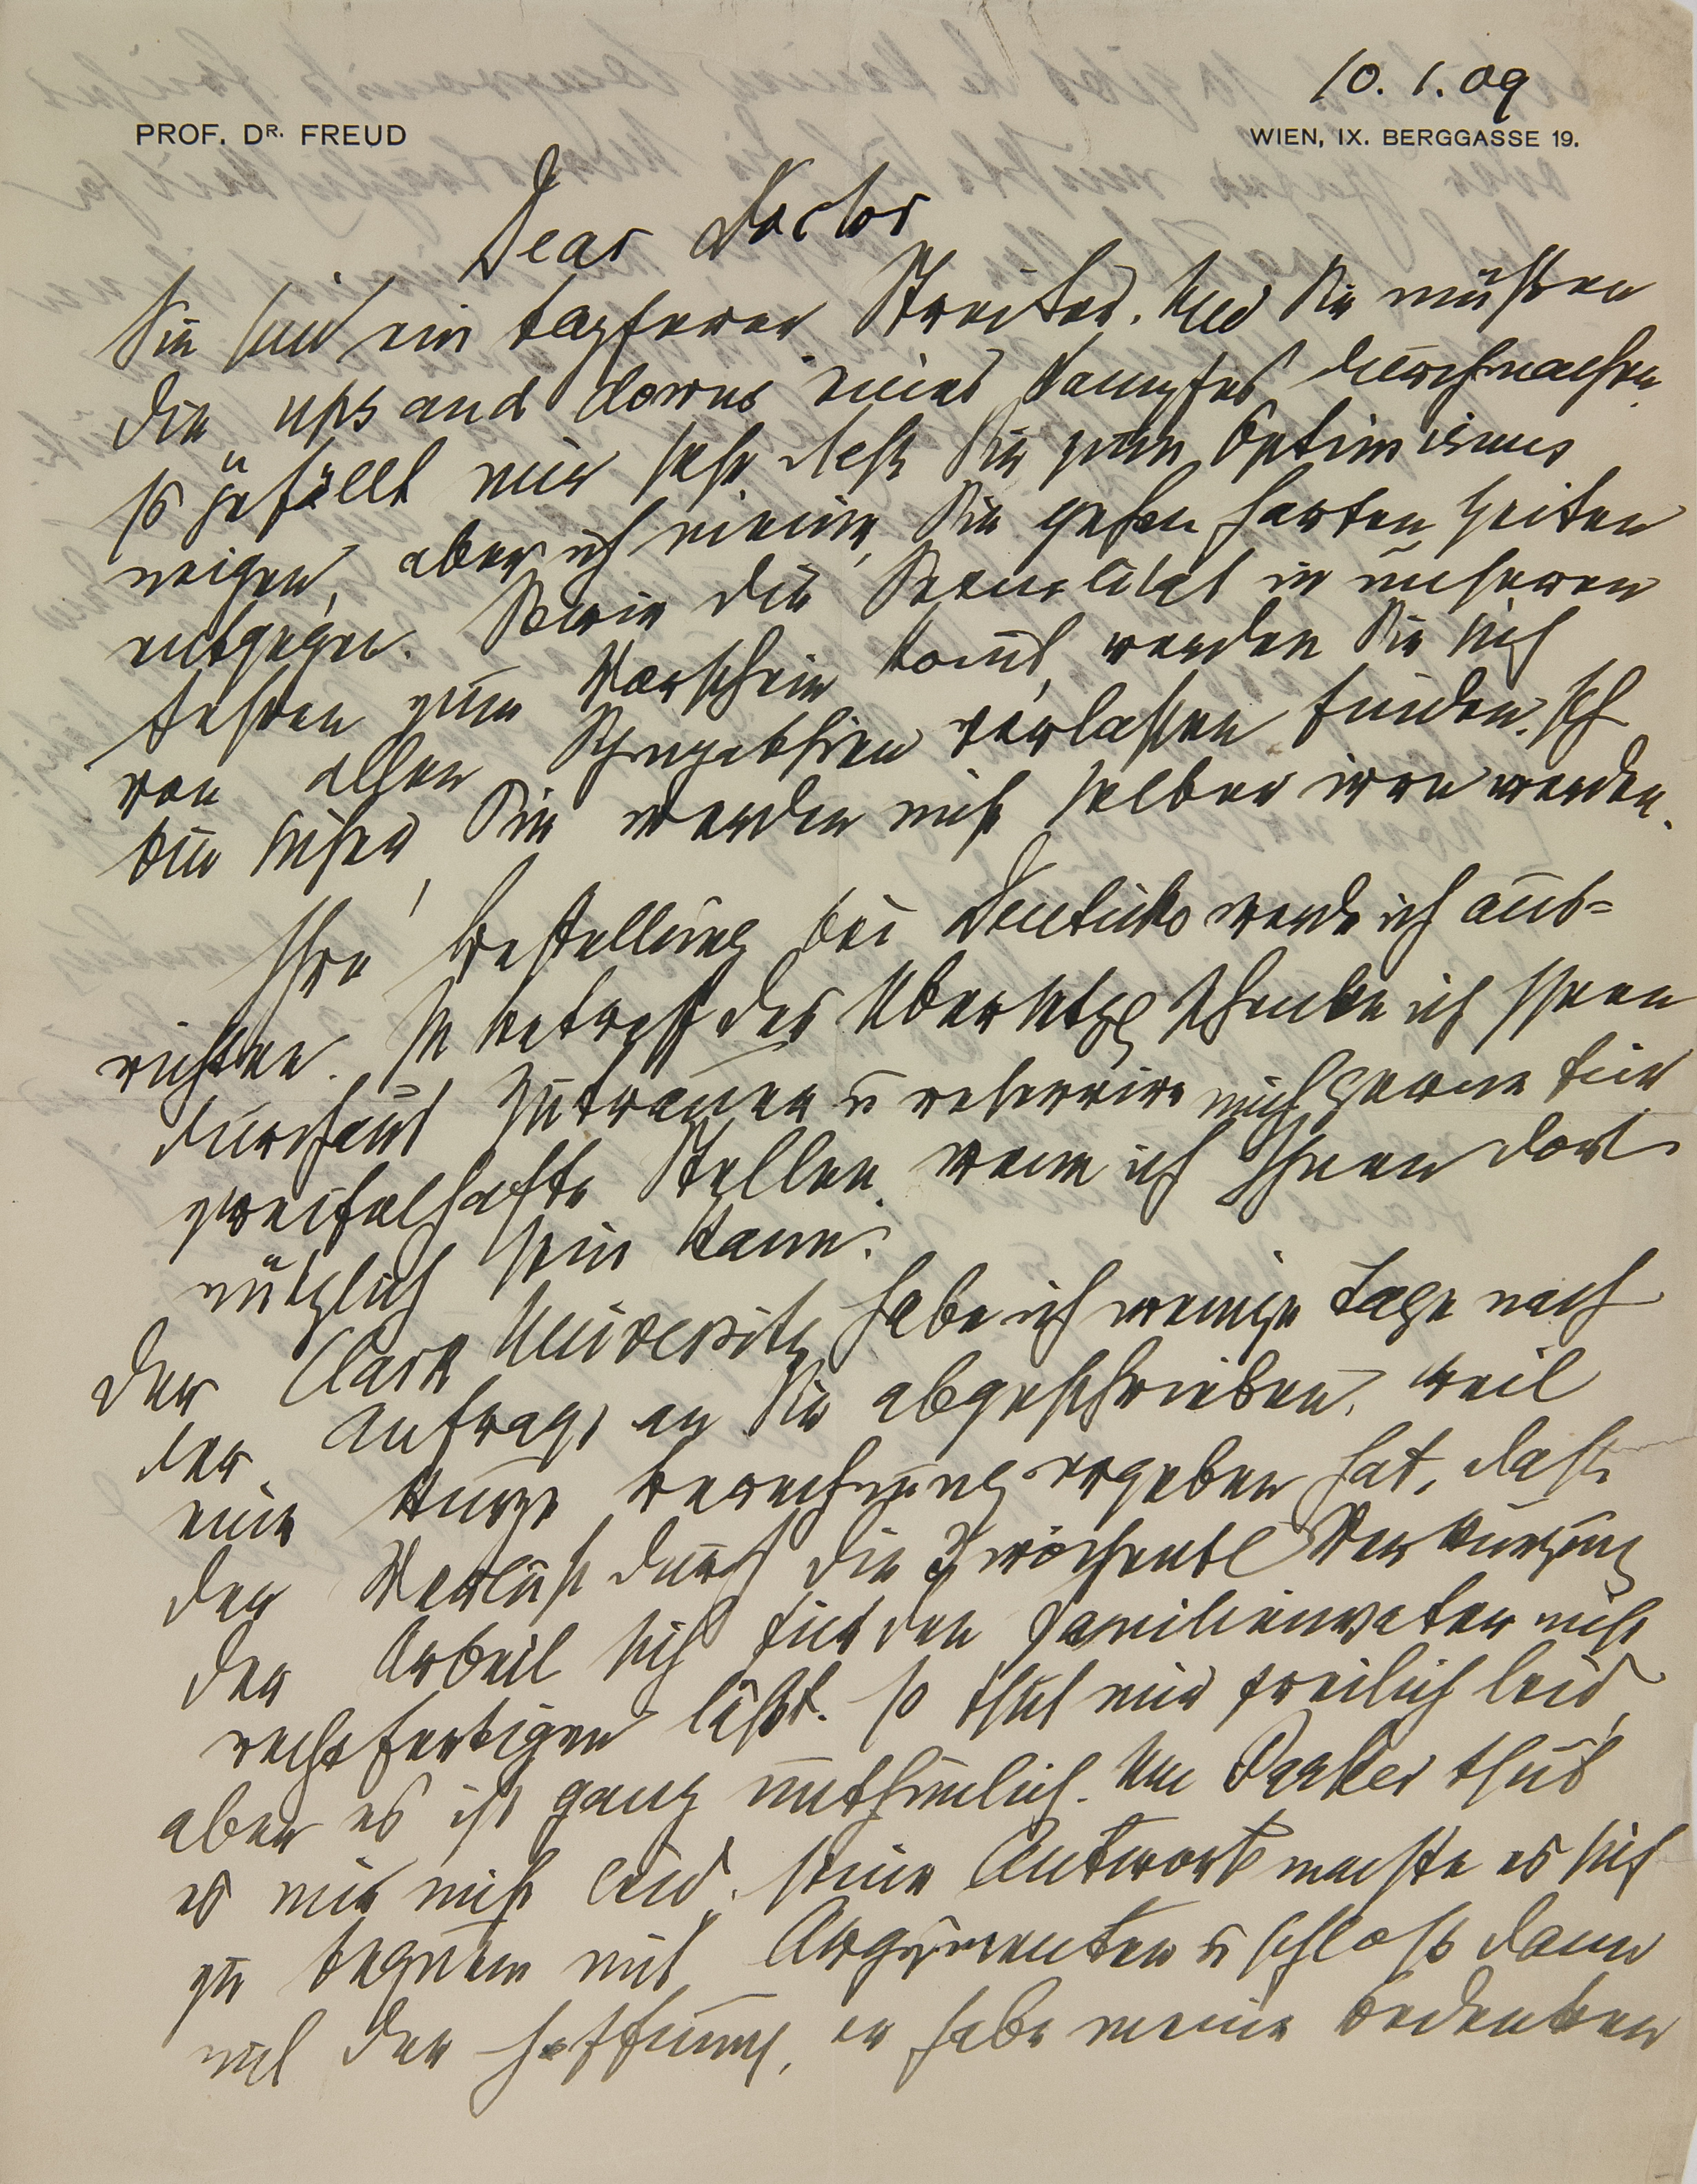 10. 1. 09
PROF. DR. FREUD
WIEN, IX. BERGGASSE 19.
Dear Doctor
Sie sind ein tapferer Streiter. Und Sie müßen
die ups and downs eines Kampfes durchmachen.
Es gefällt mir sehr daß Sie zum Optimismus
neigen, aber ich meine, Sie gehen harten Zeiten
entgegen. Sowie die Sexualität in unseren
zum Vorschein komt, werden Sie sich
von allen Sympathien verlassen finden. Ich
bin sicher, Sie werden nicht selber irre werden.
Ihre Bestellung bei Deuticke werde ich aus=
richten. In betreff der Übersetzg schenke ich Ihnen
durchaus Zutrauen u reservire mich gerne für
zweifelhafte Stellen, wenn ich Ihnen dort
nützlich sein kann.
Der Clark University habe ich wenige Tage nach
der Anfrage an Sie abgeschrieben, weil
eine kurze Berechnung ergeben hat, daß
der Verlust durch die 3 wöchentl Verkürzung
der Arbeit sich für den Familienvater nicht
rechtfertigen läßt. Es thut mir freilich leid,
aber es ist ganz unthunlich. Um Parker thut
es mir nicht leid, seine Antwort machte es sich
zu bequem mit Argumenten u schloß dann
mit der Hoffnung, er habe meine Bedenken